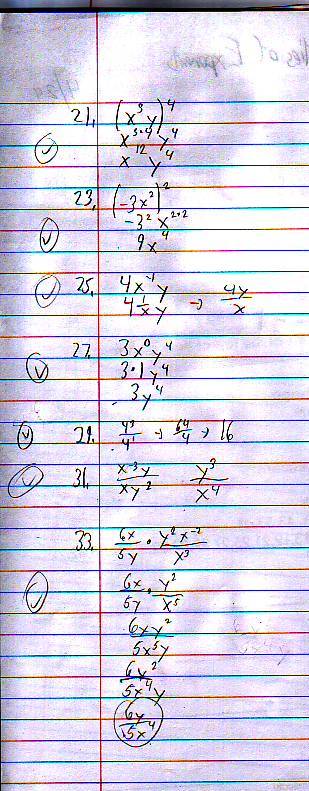 21. (x³y)⁴
x³·⁴y⁴
x¹²y⁴
23. (-3x²)²
-3² x²·²
9x⁴
25. 4x⁻¹y
4 1/x y → 4y/x
27. 3x⁰y⁴
3·1y⁴
3y⁴
29. 4³/4¹ → 64/4 → 16
31. x⁻³y/xy² y³/x⁴
33. 6x/5y · y²x⁻²/x³
6x/5y · y²/x⁵
6xy²/5x⁵y
6y²/5x⁴y
6y/5x⁴